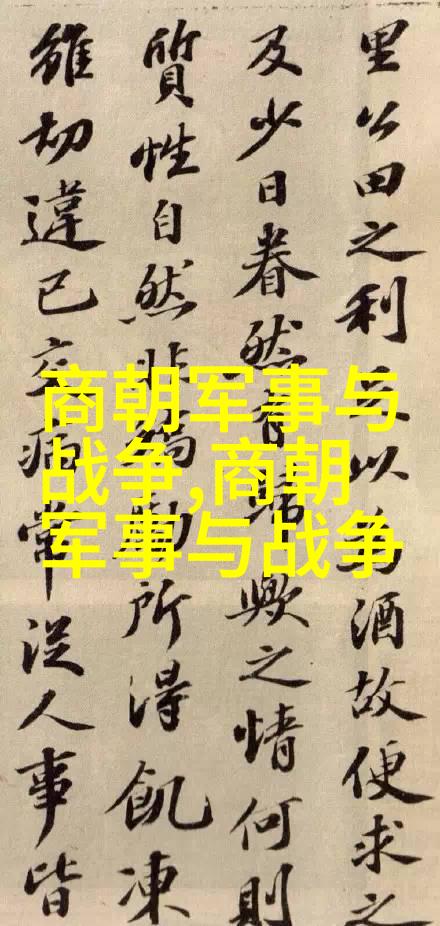 里公田之利足以為酒故便求之
及少日眷然有歸歟之情何則
質性自然非矯勵所得飢凍
雖切違已交病嘗從人事皆
商朝军事与
战争,商朝
军事与战争